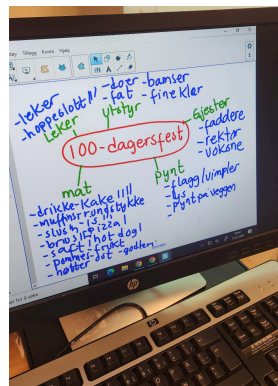 Tillegg Konto Hjelp
-leker
-hoppeslott |||
-doer -bamser
-fat -fine klær
Leker
utstyr
Gjester
-faddere
-rektor
-voksne
100-dagersfest
mat
-drikke-kake ||||
-muffins rundstykke
-slush-is |||
-brus || -pizza |
-saft | -hotdog |
-pommes -frukt
-nøtter -ost -godteri
pynt
-flagg/vimpler
-lys
-pynt på veggen
hp